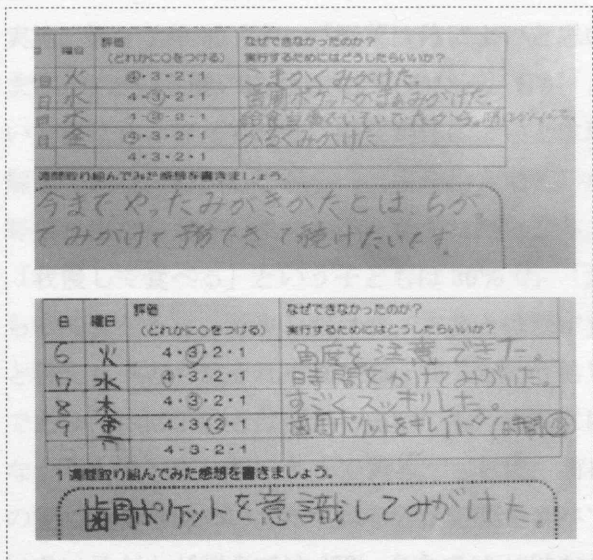 日 曜日 評価 なぜできなかったのか?
(どれかに○をつける) 実行するためにはどうしたらいいか?
日 火 4・3・2・1 こまかくみがけた。
日 水 4・3・2・1 歯周ポケットがまあみがけた。
日 木 4・3・2・1 給食当番でいそいでたから。
日 金 4・3・2・1 かるくみがけた
4・3・2・1
週間取り組んでみた感想を書きましょう。
今までやったみがきかたとは、ちが
てみがけて予防できて続けたいです。
日 曜日 評価 なぜできなかったのか?
(どれかに○をつける) 実行するためにはどうしたらいいか?
6 火 4・3・2・1 角度を注意できた。
7 水 4・3・2・1 時間をかけてみがいた。
8 木 4・3・2・1 すごくスッキリした。
9 金 4・3・2・1 歯周ポケットをキレイに
4・3・2・1
1週間取り組んでみた感想を書きましょう。
歯周ポケットを意識してみがけた。